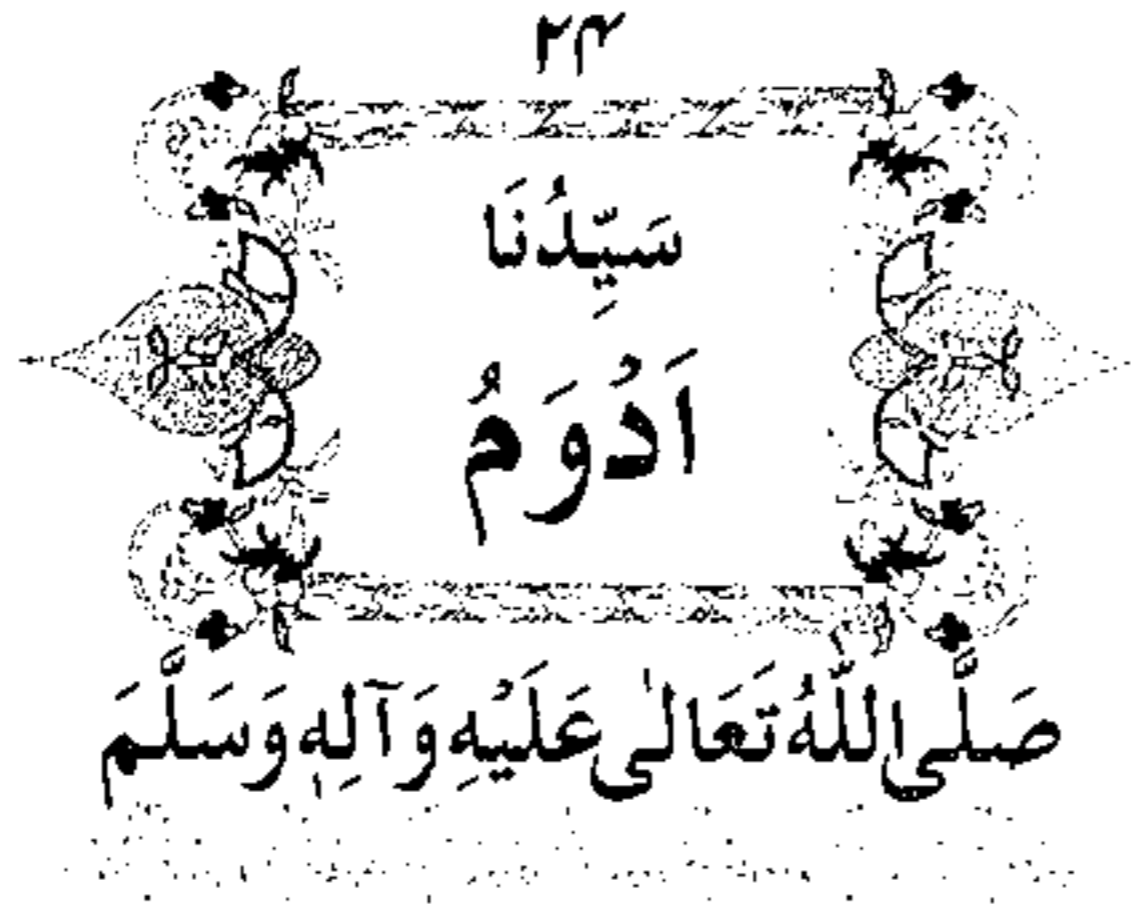 ۲۴
سَيِّدُنَا
اَدُوَمُ
صَلَّى اللّٰهُ تَعَالٰى عَلَيْهِ وَآلِهٖ وَسَلَّمَ